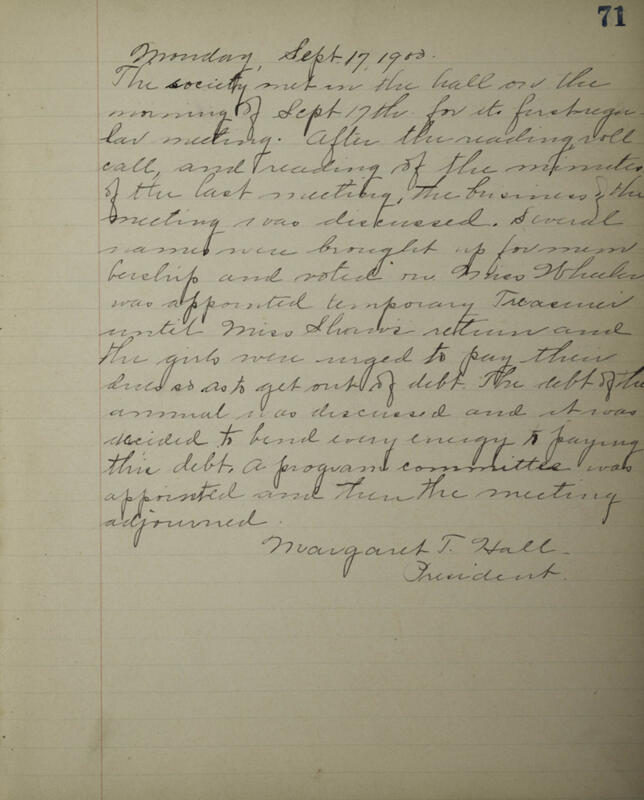 71
Monday, Sept. 17, 1900.
The society met in the hall on the
morning of Sept 17th. for its first regu-
lar meeting. After the reading, roll
call, and reading of the minutes
of the last meeting, the business of the
meeting was discussed. Several
names were brought up for mem
bership and voted on. Miss Wheeler
was appointed temporary Treasurer
until Miss Shaw's return and
the girls were urged to pay their
dues so as to get out of debt. The debt of the
annual was discussed and it was
decided to bend every energy to paying
this debt. A program committee was
appointed and then the meeting
adjourned.
Margaret T. Hall-
President.